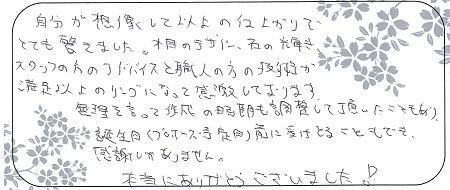 自分が想像して以上の仕上がりで
とても驚きました。木目のデザイン、石の輝き
スタッフの方のアドバイスと職人の方の技術が
満足以上のリングになって感激しております。
無理を言って作成の時期も調整して頂いたこともあり、
誕生日(プロポーズ予定日)前に受けとることもでき、
感謝しかありません。
本当にありがとうございました!